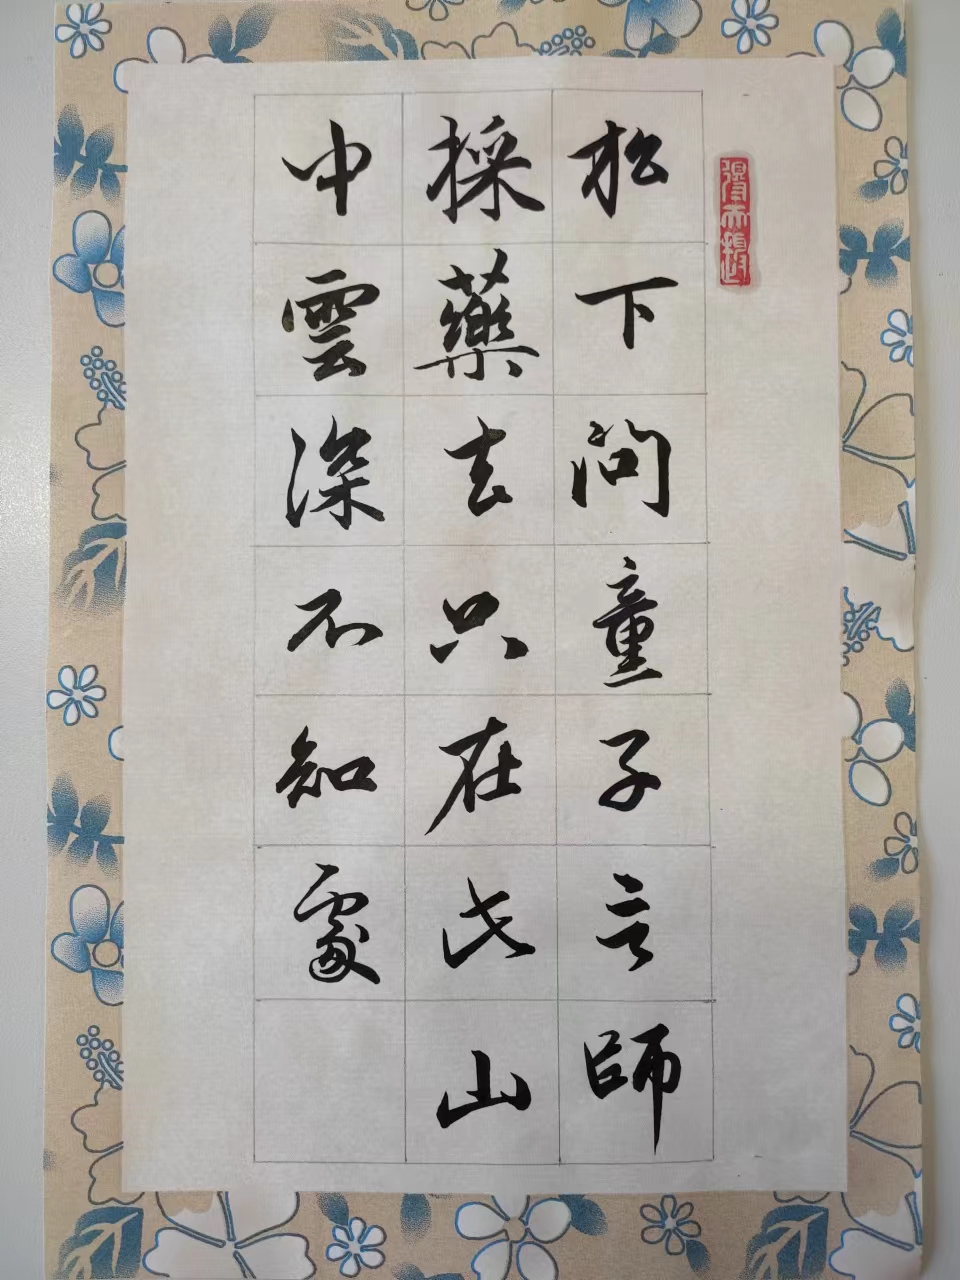 松下问童子言師
採藥去只在此山
中雲深不知處
得天趣